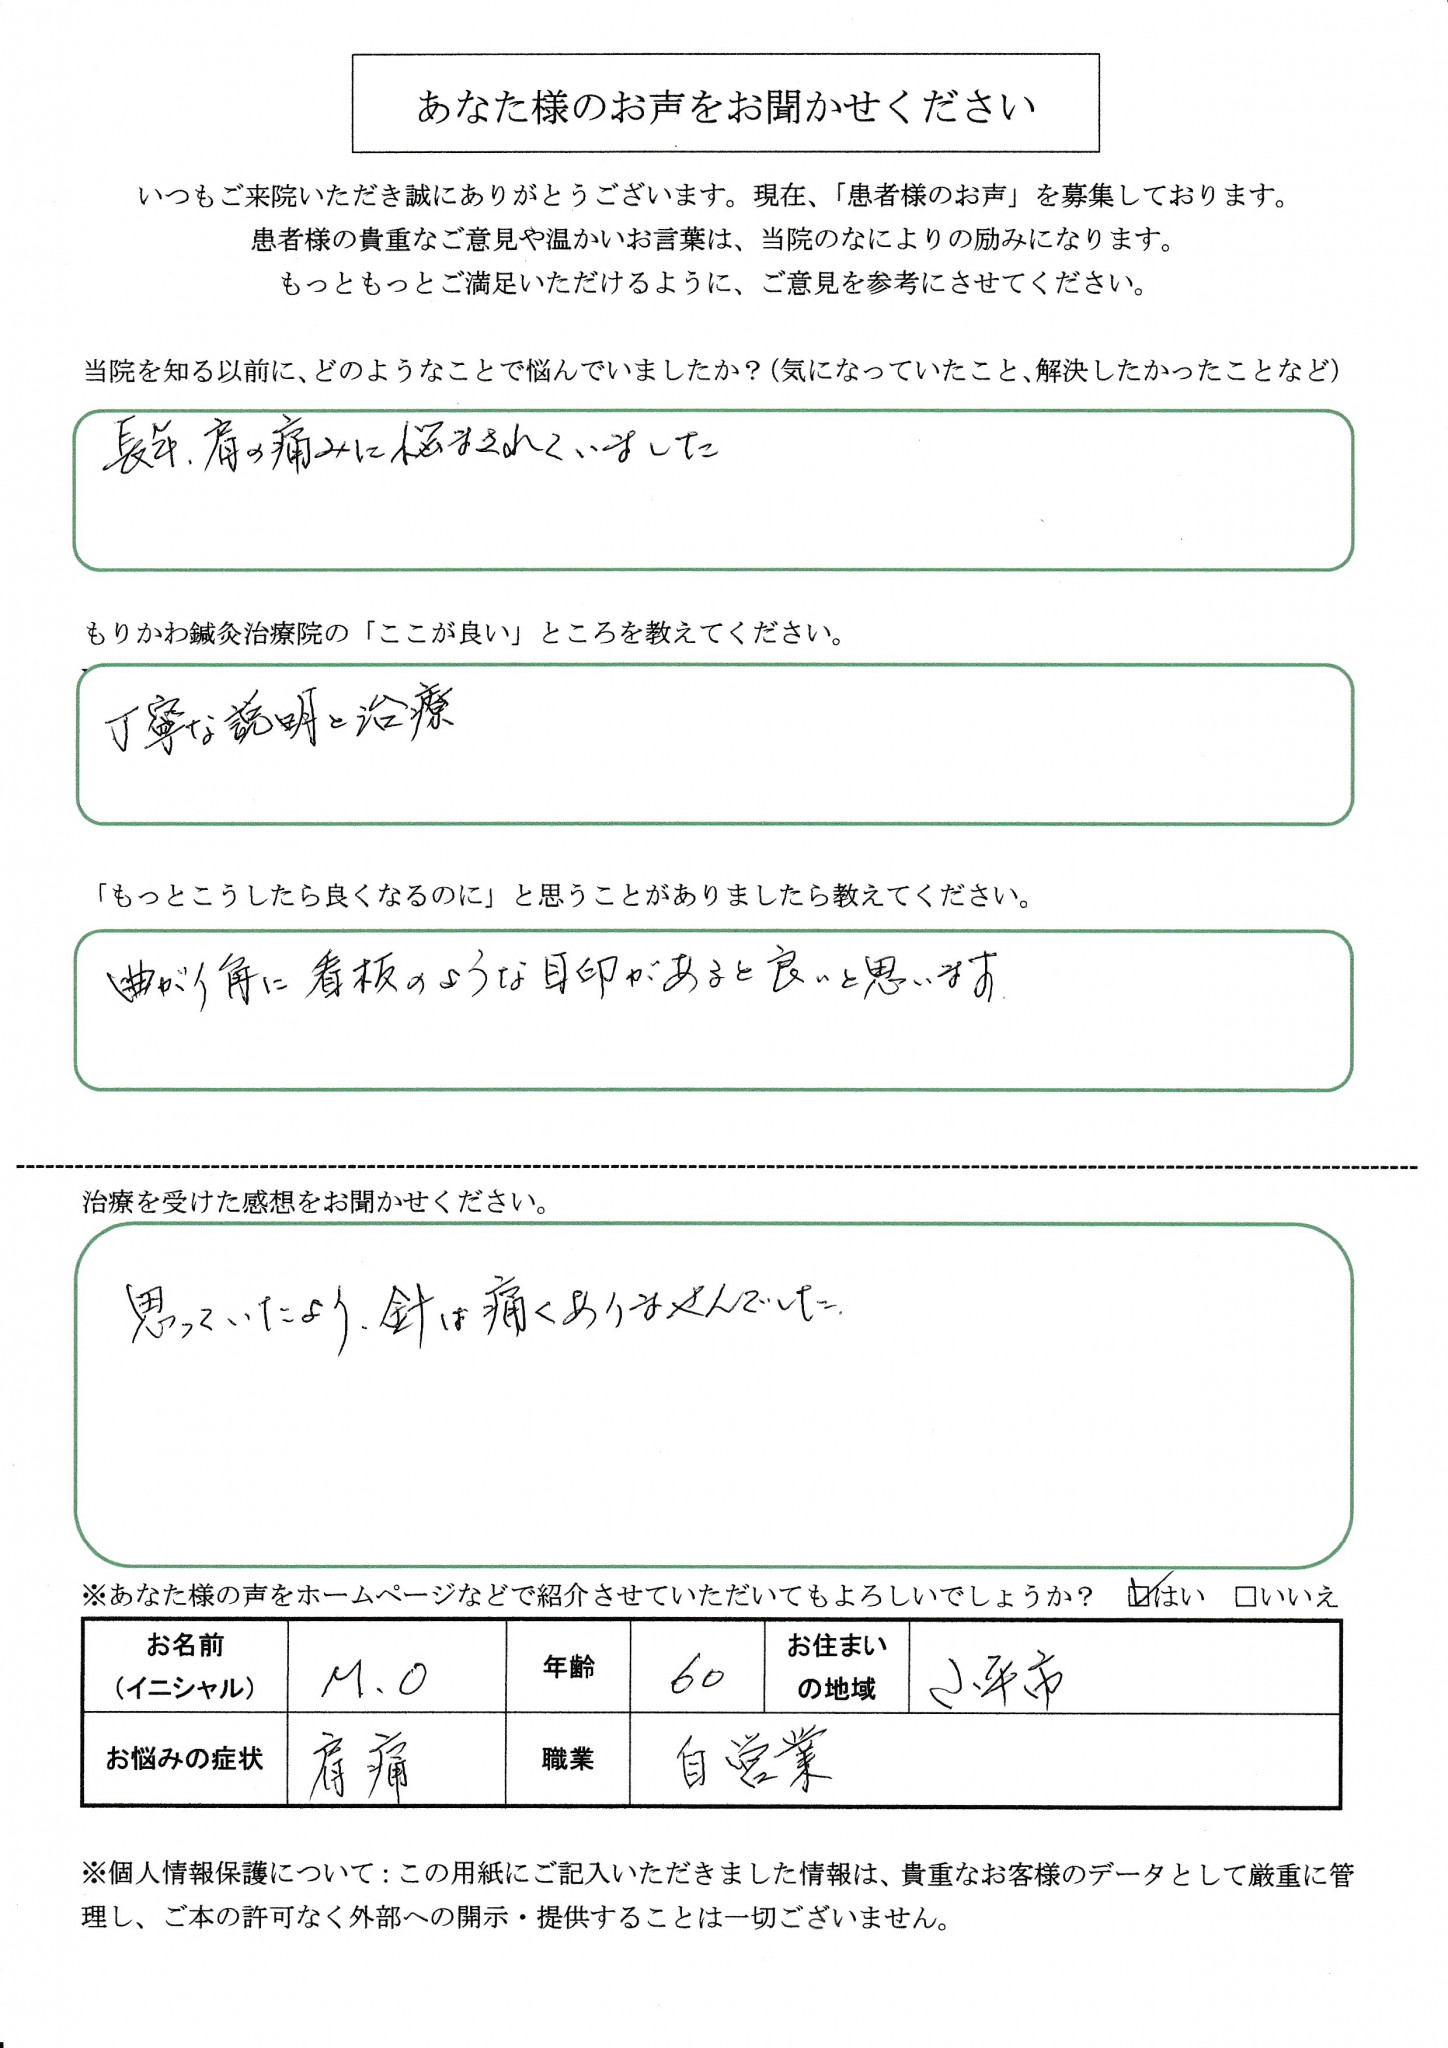 あなた様のお声をお聞かせください
いつもご来院いただき誠にありがとうございます。現在、「患者様のお声」を募集しております。
患者様の貴重なご意見や温かいお言葉は、当院のなによりの励みになります。
もっともっとご満足いただけるように、ご意見を参考にさせてください。
当院を知る以前に、どのようなことで悩んでいましたか？（気になっていたこと、解決したかったことなど）
長年、肩の痛みに悩まされていました
もりかわ鍼灸治療院の「ここが良い」ところを教えてください。
丁寧な説明と治療
「もっとこうしたら良くなるのに」と思うことがありましたら教えてください。
曲がり角に看板のような目印があると良いと思います
治療を受けた感想をお聞かせください。
思っていたより、針は痛くありませんでした。
※あなた様の声をホームページなどで紹介させていただいてもよろしいでしょうか？ ☑はい □いいえ
お名前（イニシャル） M.O 年齢 60 お住まいの地域 小平市
お悩みの症状 肩痛 職業 自営業
※個人情報保護について：この用紙にご記入いただきました情報は、貴重なお客様のデータとして厳重に管
理し、ご本の許可なく外部への開示・提供することは一切ございません。